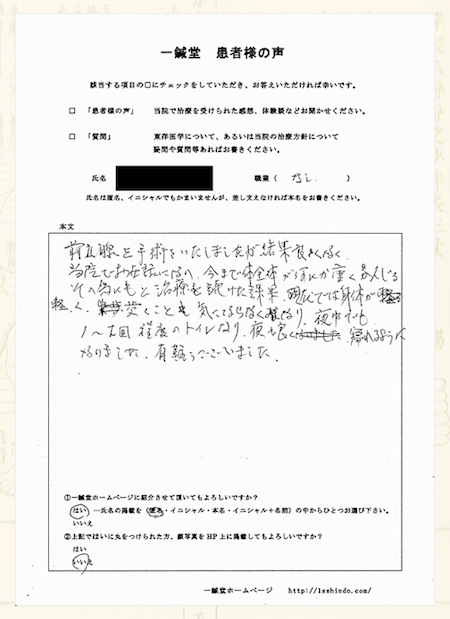 一鍼堂 患者様の声
該当する項目の□にチェックをしていただき、お答えいただければ幸いです。
□ 「患者様の声」 当院で治療を受けられた感想、体験談などお聞かせください。
□ 「質問」 東洋医学について、あるいは当院の治療方針について
疑問や質問等あればお書きください。
氏名 職業（ なし ）
氏名は匿名、イニシャルでもかまいませんが、差し支えなければ本名をお書きください。
本文
前立腺を手術をいたしましたが結果良くなく
当院でお世話になり、今まで体全体が何か重く感じる
その為にもと治療を続けた結果 現在では身体が
軽く、歩くことも気にならなくなり、夜中でも
1〜2回程度のトイレなり、夜も良く 寝れるように
なりました。有難うございました。
①一鍼堂ホームページに紹介させて頂いてもよろしいですか？
はい →氏名の掲載を（匿名・イニシャル・本名・イニシャル＋名前）の中からひとつお選び下さい。
いいえ
②上記ではいに丸をつけられた方、顔写真をHP上に掲載してもよろしいですか？
はい
いいえ
一鍼堂ホームページ http://1sshindo.com/